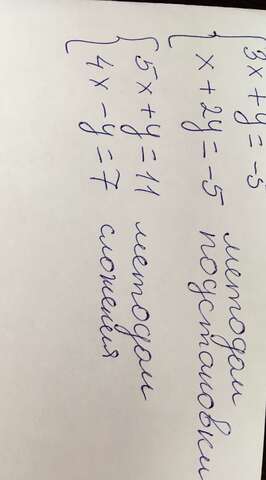 3x + y = -3
x + 2y = -5 методом подстановки
5x + y = 11 методом
4x - y = 7 сложения